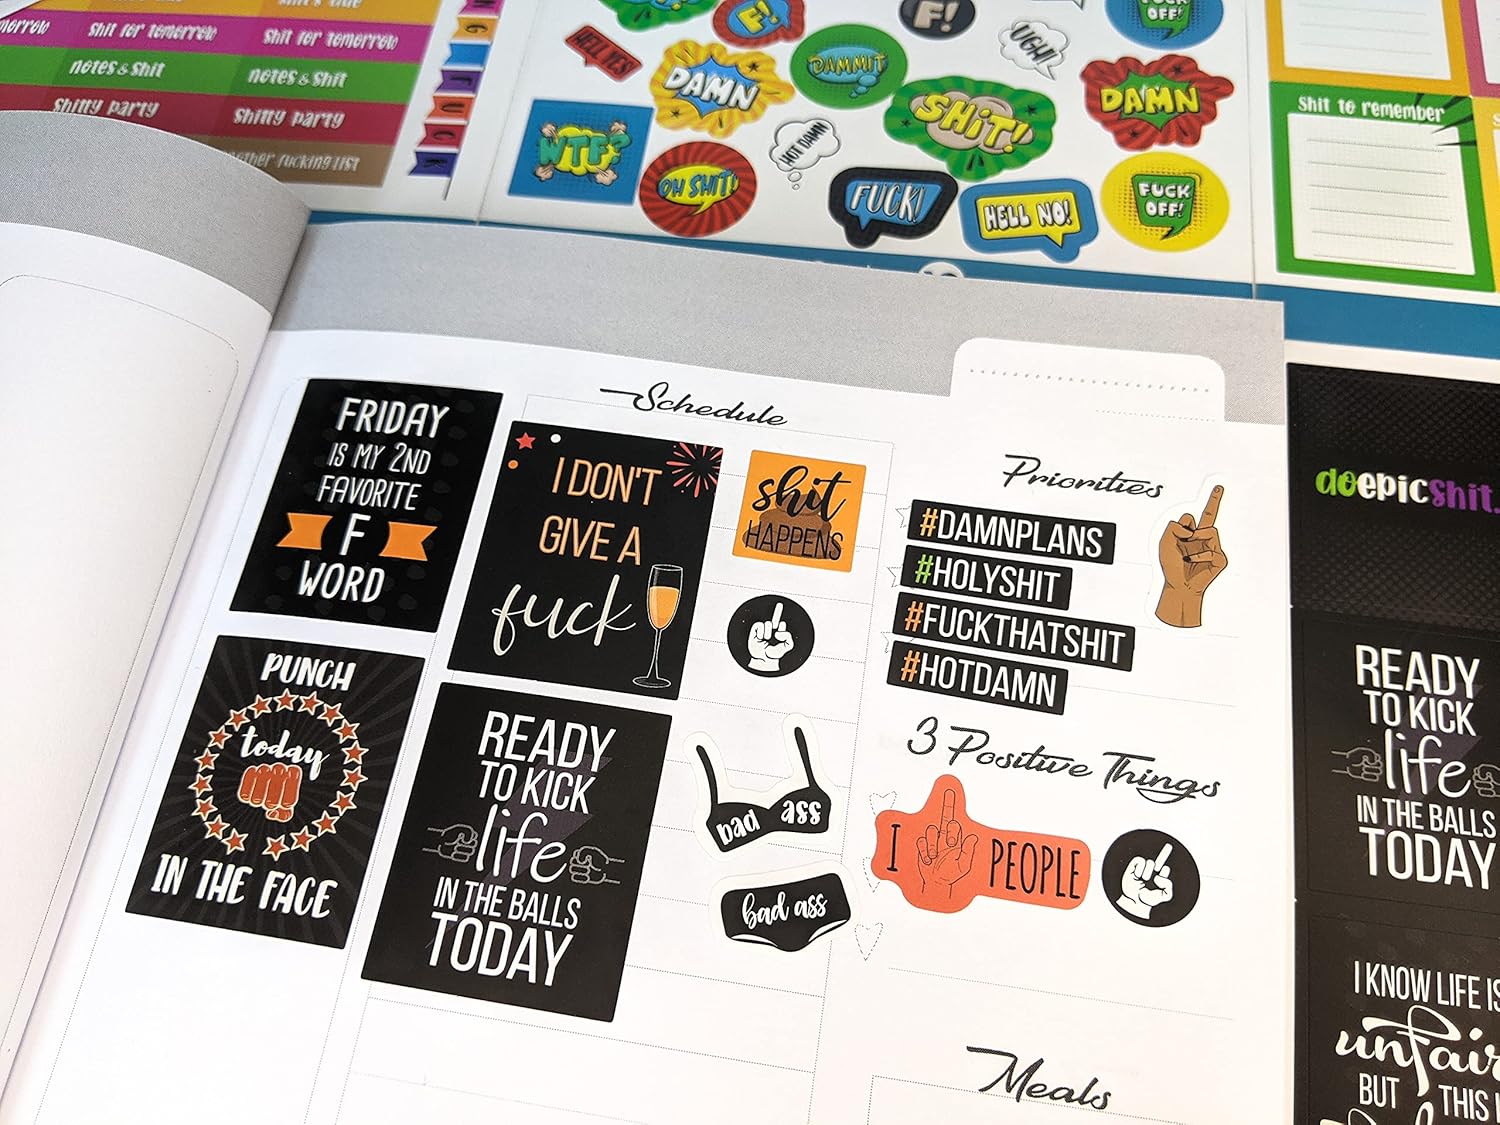 shit for tomorrow
shit for tomorrow
notes & shit
notes & shit
shitty party
shitty party
fucking list
G
F
U
C
K
HELL YES
F!
F!
UGH!
FUCK
OFF!
DAMN
DAMMIT
SHIT!
DAMN
WTF?
OH SHIT!
HOT DAMN
FUCK!
HELL NO!
FUCK
OFF!
Shit to remember
FRIDAY
IS MY 2ND
FAVORITE
F
WORD
PUNCH
today
IN THE FACE
Schedule
I DON'T
GIVE A
fuck
shit
HAPPENS
READY
TO KICK
life
IN THE BALLS
TODAY
bad ass
bad ass
Priorities
#DAMNPLANS
#HOLYSHIT
#FUCKTHATSHIT
#HOTDAMN
3 Positive Things
I PEOPLE
Meals
doepicshit.
READY
TO KICK
life
IN THE BALLS
TODAY
I KNOW LIFE IS
unfair
BUT THIS